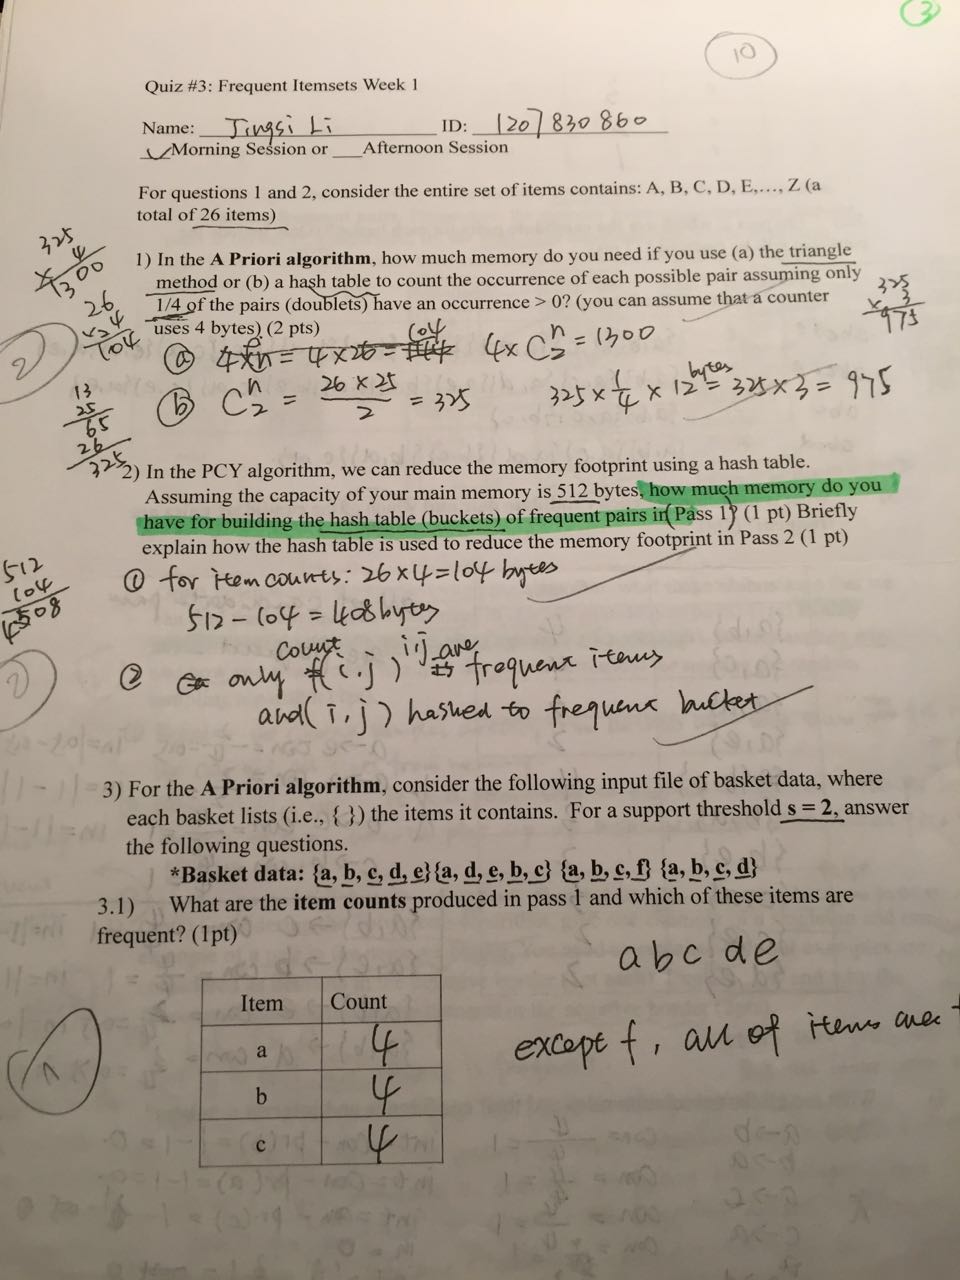 3
10
Quiz #3: Frequent Itemsets Week 1
Name: Jingsi Li ID: 1207830860
✓Morning Session or ___Afternoon Session
For questions 1 and 2, consider the entire set of items contains: A, B, C, D, E,…, Z (a
total of 26 items)
1) In the A Priori algorithm, how much memory do you need if you use (a) the triangle
method or (b) a hash table to count the occurrence of each possible pair assuming only
1/4 of the pairs (doublets) have an occurrence > 0? (you can assume that a counter
uses 4 bytes) (2 pts)
325
× 4
1300
26
× 4
104
325
× 3
975
2
ⓐ 4×n = 4×26 = 104 4× C n 2 = 1300
ⓑ C n 2 = 26 × 25 / 2 = 325 325 × 1/4 × 12 bytes = 325×3 = 975
13
25
65
26
325
2) In the PCY algorithm, we can reduce the memory footprint using a hash table.
Assuming the capacity of your main memory is 512 bytes, how much memory do you
have for building the hash table (buckets) of frequent pairs in (Pass 1)? (1 pt) Briefly
explain how the hash table is used to reduce the memory footprint in Pass 2 (1 pt)
512
104
408
① for item counts: 26×4=104 bytes
512 - 104 = 408 bytes
2
② only count (i.j) i,j are frequent items
and (i,j) hashed to frequent bucket
3) For the A Priori algorithm, consider the following input file of basket data, where
each basket lists (i.e., { }) the items it contains. For a support threshold s = 2, answer
the following questions.
*Basket data: {a, b, c, d, e}{a, d, e, b, c} {a, b, c, f} {a, b, c, d}
3.1) What are the item counts produced in pass 1 and which of these items are
frequent? (1pt)
a b c d e
Item Count
a 4
b 4
c 4
except f, all of items are